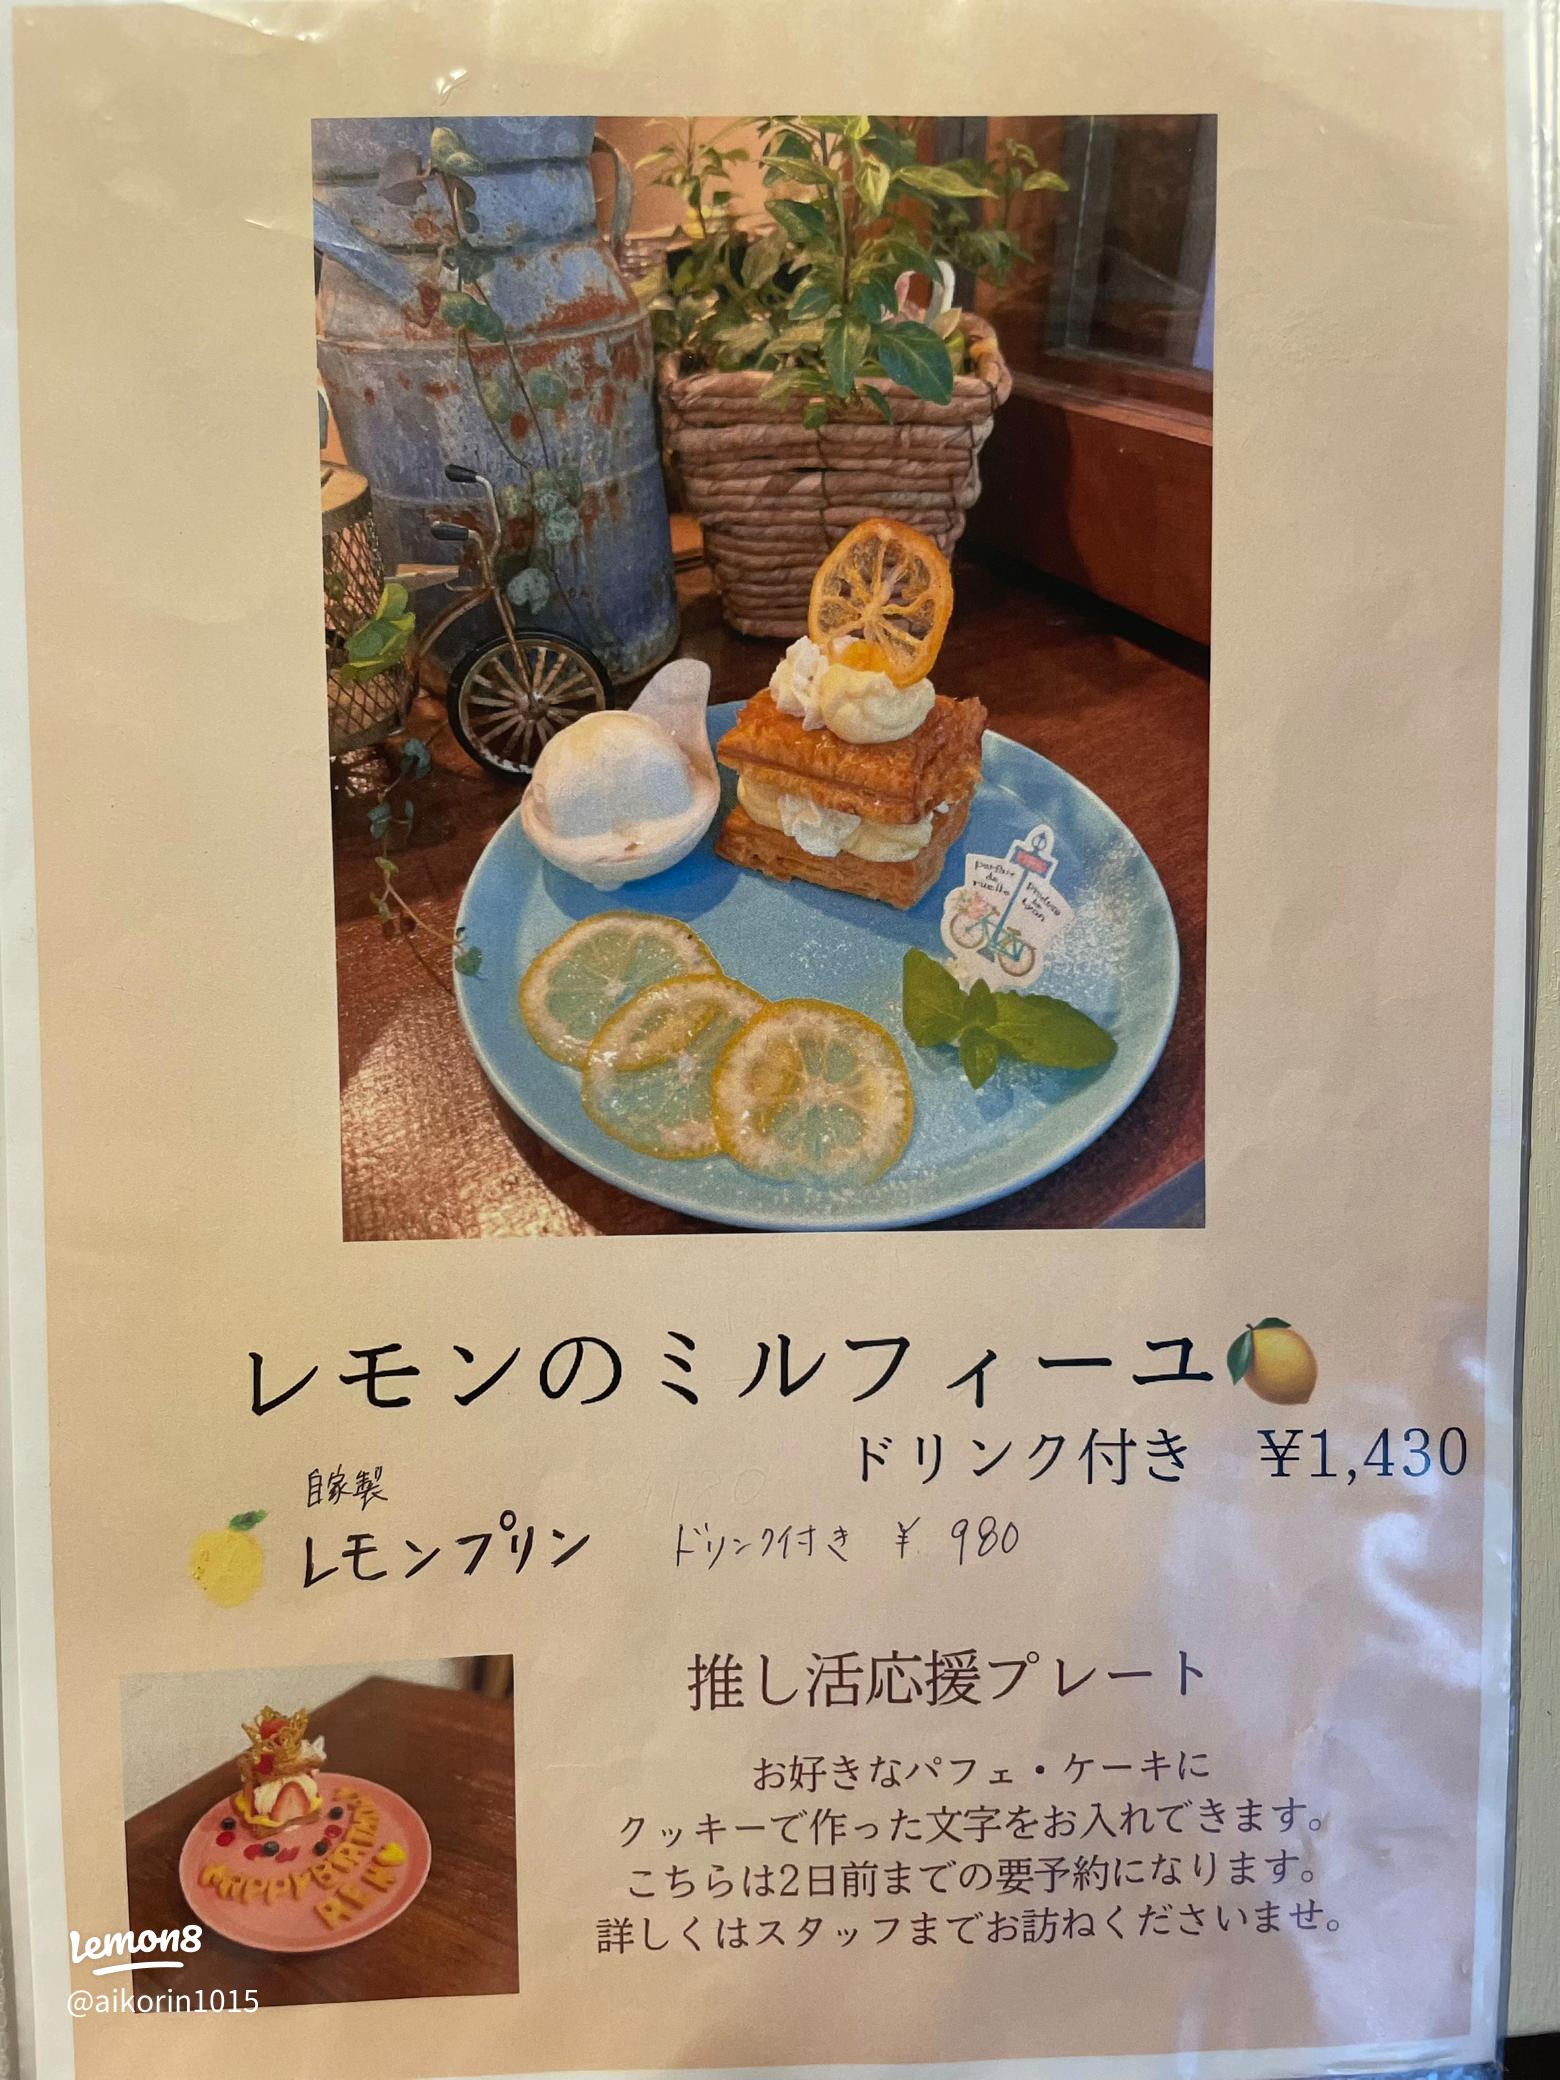 parfait
de
ruelle
produce
by
Lyon
レモンのミルフィーユ🍋
ドリンク付き ¥1,430
自家製
レモンプリン ドリンク付き ¥ 980
推し活応援プレート
お好きなパフェ・ケーキに
クッキーで作った文字をお入れできます。
こちらは2日前までの要予約になります。
詳しくはスタッフまでお訪ねくださいませ。
HAPPY BIRTHDAY
lemon8
@aikorin1015